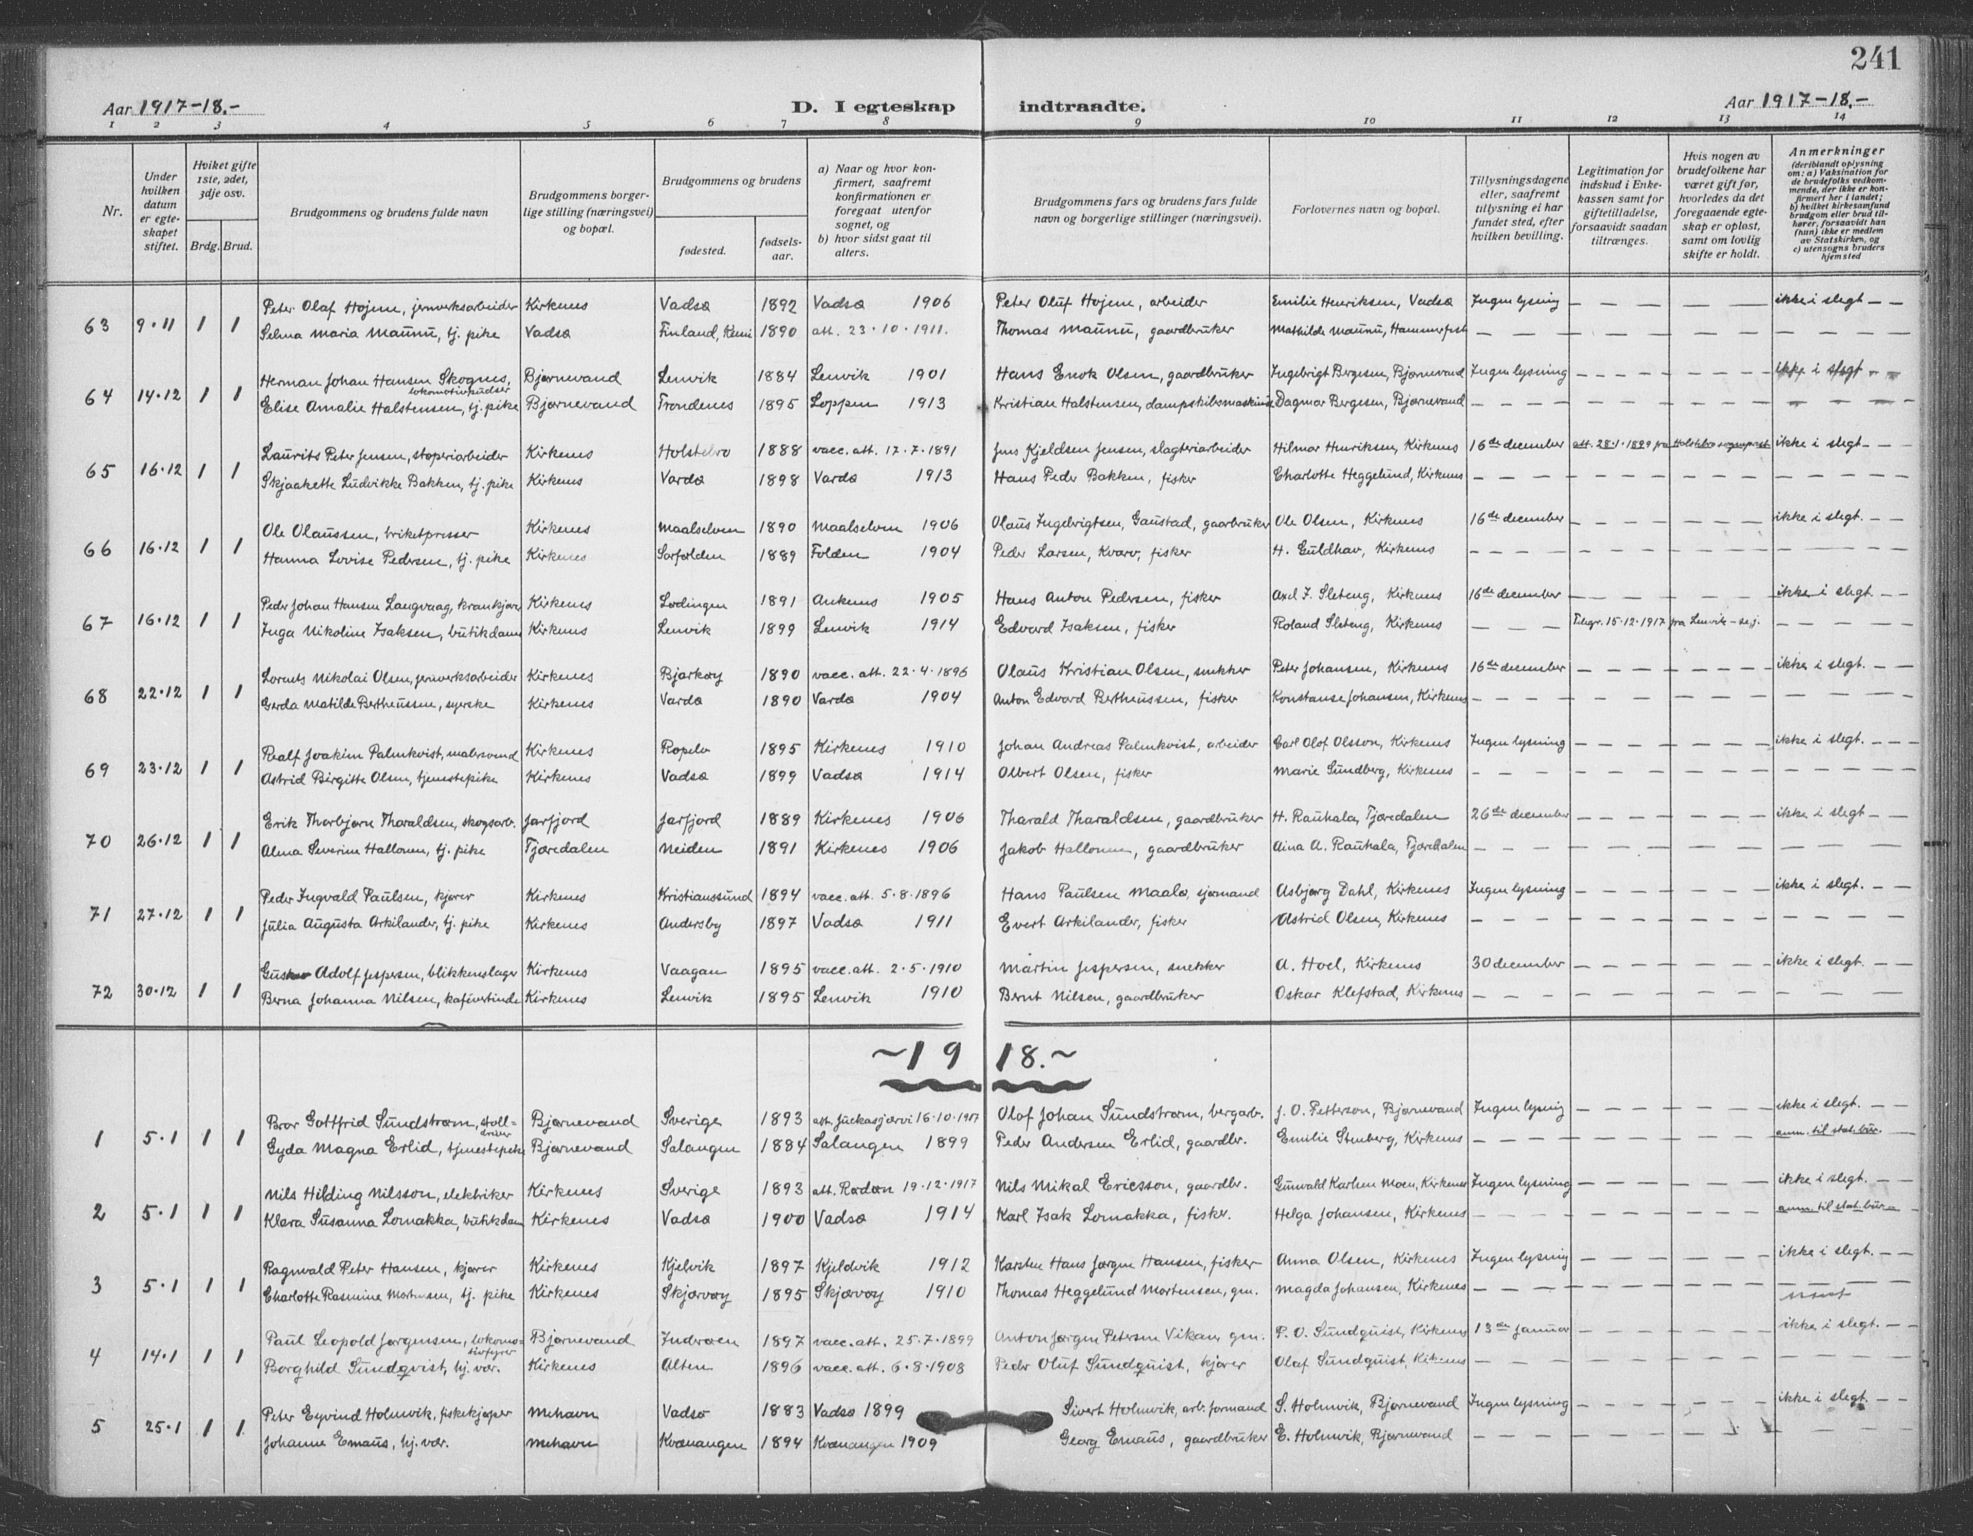 241
Aar 1917-18.-
D. I egteskap indtraadte.
Aar 1917-18.-
1 2 3 4 5 6 7 8 9 10 11 12 13 14
Nr.
Under hvilken datum er egteskapet stiftet.
Hviket gifte 1ste, 2det, 3dje osv.
Brdg. Brud.
Brudgommens og brudens fulde navn
Brudgommens borgerlige stilling (næringsvei) og bopæl.
Brudgommens og brudens
fødested.
fødselsaar.
a) Naar og hvor konfirmert, saafremt konfirmationen er foregaat utenfor sognet, og
b) hvor sidst gaat til alters.
Brudgommens fars og brudens fars fulde navn og borgerlige stillinger (næringsvei).
Forlovernes navn og bopæl.
Tillysningsdagene eller, saafremt tillysning ei har fundet sted, efter hvilken bevilling.
Legitimation for indskud i Enkekassen samt for giftetilladelse, forsaavidt saadan tiltrænges.
Hvis nogen av brudefolkene har været gift før, hvorledes da det foregaaende egteskap er opløst, samt om lovlig skifte er holdt.
Anmerkninger
(deriblandt oplysning om: a) Vaksination for de brudefolks vedkommende, der ikke er konfirmert her i landet;
b) hvilket kirkesamfund brudgom eller brud tilhører, forsaavidt han (hun) ikke er medlem av Statskirken, og
c) utensogns bruders hjemsted
63 9.11 1 1 Peter Olaf Hojem, jernverksarbeider Kirkenes Vadsø 1892 Vadsø 1906 Peter Oluf Hojem, arbeider Emilie Henriksen, Vadsø Ingen lysning — — — — ikke i slegt — —
Selma Maria Maunu, tj. pike Vadsø Finland, Kemi 1890 att. 23.10.1911. Thomas Maunu, gaardbruker Mathilde Maunu, Hammerfest — — — —
64 14.12 1 1 Herman Johan Hansen Skognes, lokomotivpudser Bjørnevand Lenvik 1884 Lenvik 1901 Hans Enok Olsen, gaardbruker Ingebrigt Bergesen, Bjørnevand Ingen lysning — — — — ikke i slegt — —
Elise Amalie Halstensen, tj. pike Bjørnevand Trondenes 1895 Loppen 1913 Kristian Halstensen, dampskibsmaskinist Dagmar Bergesen, Bjørnevand — — — —
65 16.12 1 1 Laurits Peter Jensen, støperiarbeider Kirkenes Holstebro 1888 vacc. att. 17.7.1891 Jens Kjeldsen Jensen, slagteriarbeider Hilmar Henriksen, Kirkenes 16de december att. 28.1.1899 fra Holstebro sogneprest ikke i slegt — —
Skjaakette Ludvikke Bakken, tj. pike Kirkenes Vardø 1898 Vardø 1913 Hans Peder Bakken, fisker Charlotte Heggelund, Kirkenes — — — —
66 16.12 1 1 Ole Olaussen, briketpresser Kirkenes Maalselven 1890 Maalselven 1906 Olaus Ingebrigtsen, Gaustad, gaarbruker Ole Olsen, Kirkenes 16de december — — — — ikke i slegt. —
Hanna Lovise Pedersen, tj. pike Kirkenes Sørfolden 1889 Folden 1904 Peder Larsen, Kvarv, fisker H. Guldhav, Kirkenes — — — —
67 16.12 1 1 Peder Johan Hansen Langvaag, krankjører Kirkenes Lødingen 1891 Ankenes 1905 Hans Anton Pedersen, fisker Axel J. Sleteng, Kirkenes 16de december — — — — ikke i slegt — —
Inga Nikoline Isaksen, butikdame Kirkenes Lenvik 1899 Lenvik 1914 Edvard Isaksen, fisker Roland Sleteng, Kirkenes — — — Telegr. 15.12.1917 fra Lenvik — — —
68 22.12 1 1 Lorents Nikolai Olsen, jernverksarbeider Kirkenes Bjarkøy 1890 vacc. att. 22.4.1896 Olaus Kristian Olsen, snekker Peter Johansen, Kirkenes 16de december — — — — ikke i slegt. — —
Gerda Matilde Bertheussen, syerske Kirkenes Vardø 1890 Vardø 1904 Anton Edvard Bertheussen, fisker Konstanse Johansen, Kirkenes — — — —
69 23.12 1 1 Ralf Joakim Palmkvist, malersvend Kirkenes Ropelv 1895 Kirkenes 1910 Johan Andreas Palmkvist, arbeider Carl Olof Olsson, Kirkenes Ingen lysning — — — — ikke i slegt. — —
Astrid Birgitte Olsen, tjenestepike Kirkenes Vadsø 1899 Vadsø 1914 Albert Olsen, fisker Marie Sundberg, Kirkenes — — — —
70 26.12 1 1 Erik Thorbjørn Tharaldsen, skogsarb. Jarfjord Jarfjord 1889 Kirkenes 1906 Tharald Tharaldsen, gaardbruker H. Rauhala, Tjæredalen 26de december — — — — ikke i slegt — —
Alma Severine Hallonen, tj. pike Tjæredalen Neiden 1891 Kirkenes 1906 Jakob Hallonen, gaardbruker Aina A. Rauhala, Tjæredalen — — — —
71 27.12 1 1 Peder Ingvald Paulsen, kjører Kirkenes Kristiansund 1894 vacc. att. 5.8.1896 Hans Paulsen Maalø, sjømand Asbjørg Dahl, Kirkenes Ingen lysning — — — — ikke i slegt. — —
Julia Augusta Arkilander, tj. pike Kirkenes Andersby 1897 Vadsø 1911 Evert Arkilander, fisker Astrid Olsen, Kirkenes — — — —
72 30.12 1 1 Gustav Adolf Jespersen, blikkenslager Kirkenes Vaagan 1895 vacc. att. 2.5.1910 Martin Jespersen, snekker A. Hoel, Kirkenes 30 december — — — — ikke i slegt. — —
Berna Johanna Nilsen, kafévertinde Kirkenes Lenvik 1895 Lenvik 1910 Bernt Nilsen, gaardbruker Oskar Klefstad, Kirkenes — — — —
~1918.~
1 5.1 1 1 Bror Gottfrid Sundstrøm, stolldriver Bjørnevand Sverige 1893 att. Juckasjærvi 16.10.1917 Olof Johan Sundstrøm, bergarb. J. O. Petterson, Bjørnevand Ingen lysnig — — — — ikke i slegt. — —
Gyda Magna Erlid, tjenestepike Bjørnevand Salangen 1884 Salangen 1899 Peder Andersen Erlid, gaardbr. Emilie Stenberg, Kirkenes — — — — anm. til stat. bur.
2 5.1 1 1 Nils Hilding Nilsson, elektriker Kirkenes Sverige 1893 att. Rødøn 19.12.1917 Nils Mikal Ericsson, gaardbr. Gunvald Karlsen Moen, Kirkenes Ingen lysning — — — — ikke i slegt. — —
Klara Susanna Lomakka, butikdam Kirkenes Vadsø 1900 Vadsø 1914 Karl Isak Lomakka, fisker. Helga Johansen, Kirkenes — — — — anm. til stat. bur.
3 5.1 1 1 Ragnvald Peter Hansen, kjører Kirkenes Kjelvik 1897 Kjeldvik 1912 Karsten Hans Jørgen Hansen, fisker Anna Olsen, Kirkenes Ingen lysning — — — — ikke i slegt. — —
Charlotte Rasmine Mortensen, tj. pike Kirkenes Skjærvøy 1895 Skjærvøy 1910 Thomas Heggelund Mortensen, gm. Magda Johansen, Kirkenes — — — —
4 14.1 1 1 Paul Leopold Jørgensen, lokomotivfyrer Bjørnevand Inderøen 1897 vacc. att. 25.7.1899 Anton Jørgen Petersen Vikan, gm. P. O. Sundquist, Kirkenes 13de januar — — — — ikke i slegt. — —
Borghild Sundqvist, hj. vær. Kirkenes Alten 1896 vacc. att. 6.8.1908 Peder Oluf Sundquist, kjører Olaf Sundquist, Kirkenes — — — —
5 25.1 1 1 Peter Eyvind Holmvik, fiskekjøper Mehavn Vadsø 1883 Vadsø 1899 Sivert Holmvik, arb. formand S. Holmvik, Bjørnevand Ingen lysning — — — — ikke i slegt. — —
Johanne Emaus, hj. vær. Mehavn Kvænangen 1894 Kvænangen 1909 Georg Emaus, gaardbruker E. Holmvik, Bjørnevand — — — —